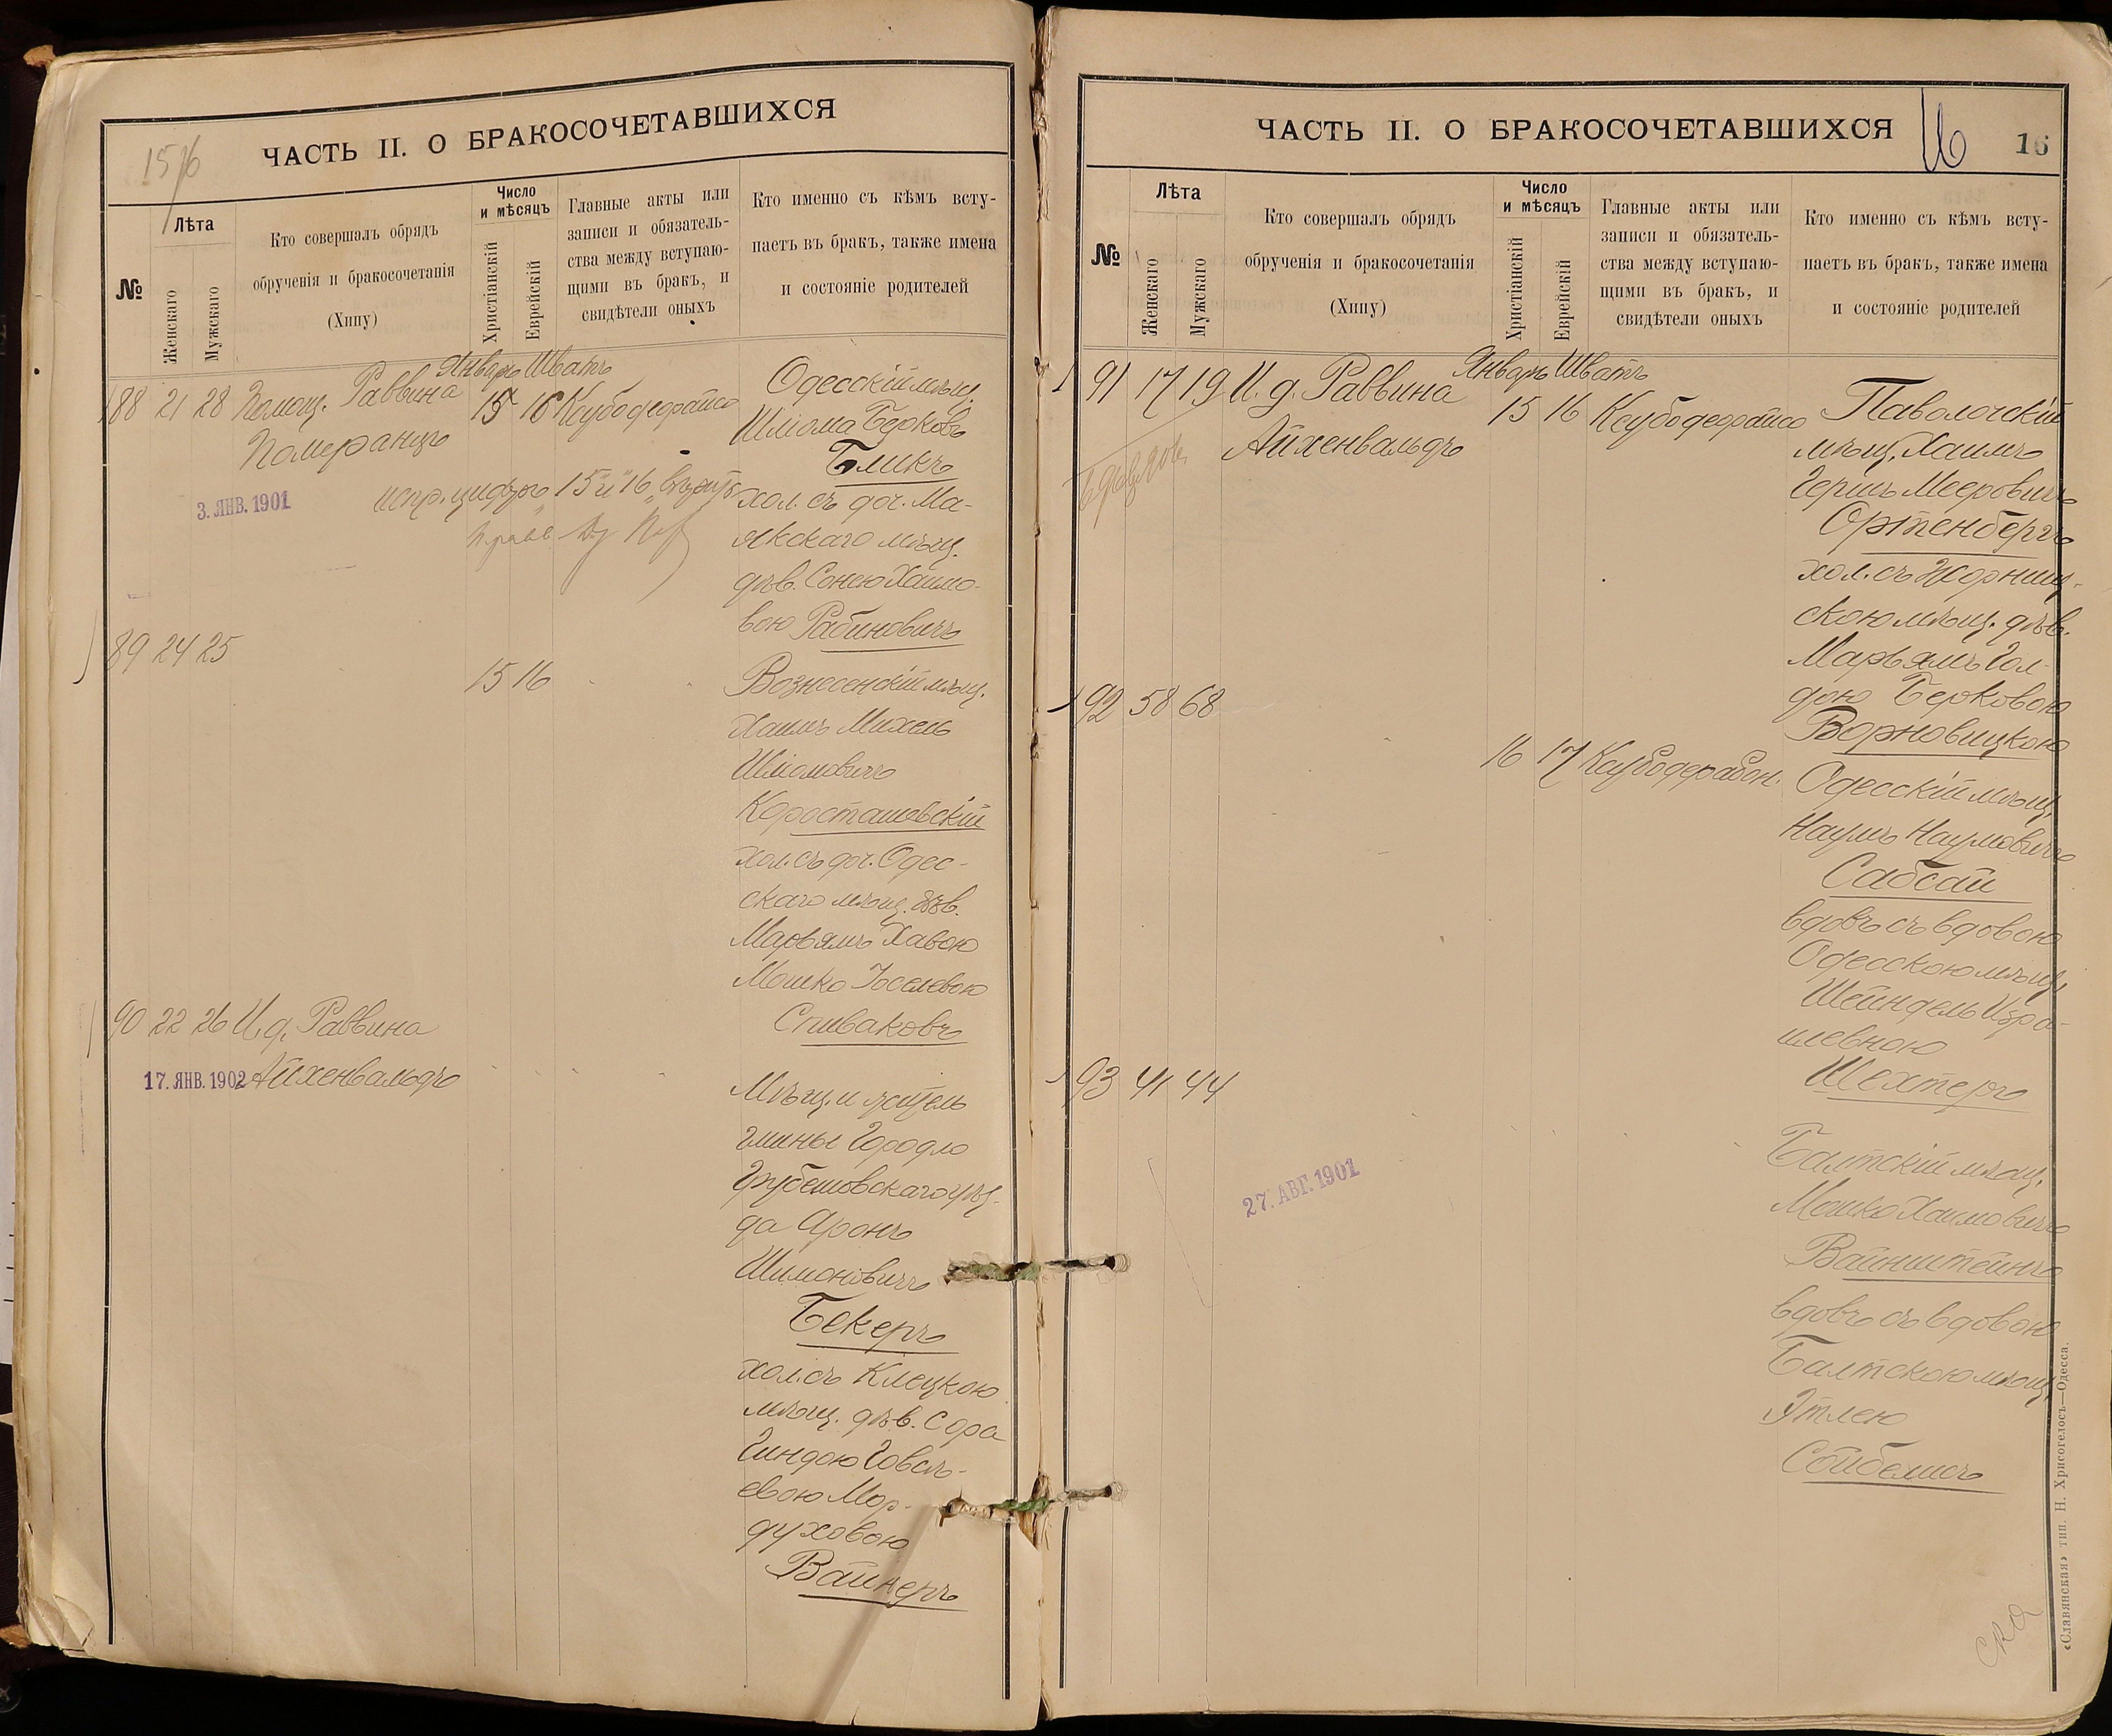 ЧАСТЬ II. О БРАКОСОЧЕТАВШИХСЯ
№
Лѣта
Женскаго
Мужскаго
Кто совершалъ обрядъ
обрученія и бракосочетанія
(Хипу)
Число
и мѣсяцъ
Христіанскій
Еврейскій
Главные акты или
записи и обязатель-
ства между вступаю-
щими въ бракъ, и
свидѣтели оныхъ
Кто именно съ кѣмъ всту-
паетъ въ бракъ, также имена
и состояніе родителей
Январь Шватъ
88 21 28 Помощ. Раввина 15 16
Померанцъ
испр. цифръ „15 и 16“
3. ЯНВ. 1901
Одесскій мѣщ.
Шлiома Берковъ
Бликъ
хол. съ доч. Ма-
якскаго мѣщ.
дѣв. Сонею Хаимо-
вою Рабиновичъ
89 24 25
15 16
Вознесенскій мѣщ.
Хаимъ Михель
Шліомовичъ
Коросташевскій
хол. съ доч. Одес-
скаго мѣщ. дѣв.
Марьямъ Хавою
Мошко Іоселевою
Спиваковъ
90 22 26 И. д. Раввина
17. ЯНВ. 1902
Айхенвальдъ
Мѣщ. и жит.
гмины Городло
Грубешовскаго уѣз-
да Аронъ
Шимоновичъ
Бекеръ
хол. съ Клецкою
мѣщ. дѣв. Сора
Гиндою Говсѣ-
евою Мор-
духовою
Вайнеръ
ЧАСТЬ II. О БРАКОСОЧЕТАВШИХСЯ
16
16
№
Лѣта
Женскаго
Мужскаго
Кто совершалъ обрядъ
обрученія и бракосочетанія
(Хипу)
Число
и мѣсяцъ
Христіанскій
Еврейскій
Главные акты или
записи и обязатель-
ства между вступаю-
щими въ бракъ, и
свидѣтели оныхъ
Кто именно съ кѣмъ всту-
паетъ въ бракъ, также имена
и состояніе родителей
Январь Шватъ
91 17 19 И. д. Раввина 15 16
Айхенвальдъ
Паволочскій
мѣщ. Хаимъ
Гершъ Мееровичъ
Ортенбергъ
хол. съ Жорнищ-
скою мѣщ. дѣв.
Марьямъ Гол-
дою Берковою
Ворновицкою
92 58 68
16 17
Одесскій мѣщ.
Наумъ Наумовичъ
Сабсай
вдовъ съ вдовою
Одесскою мѣщ.
Шейндель Изра-
илевною
Шехтеръ
93 41 44
27. АВГ. 1901
Балтскій мѣщ.
Мошко Хаимовичъ
Вайнштейнъ
вдовъ съ вдовою
Балтскою мѣщ.
Этлею
Сойбелисъ
«Славянская» тип. Н. Хрисогелосъ—Одесса.